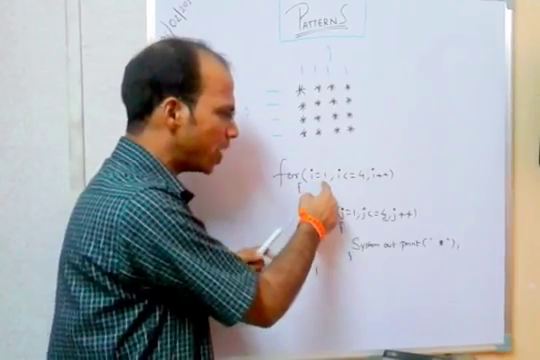 /02/20
PATTERNS
* * * *
* * * *
* * * *
* * * *
for(i=1,i<=4,i++)
{
j=1,j<=4,j++)
{
System out print(" * "),
}